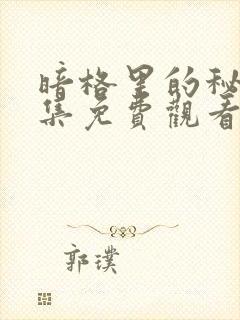 暗格里的秘
集免費觀看
郭璞